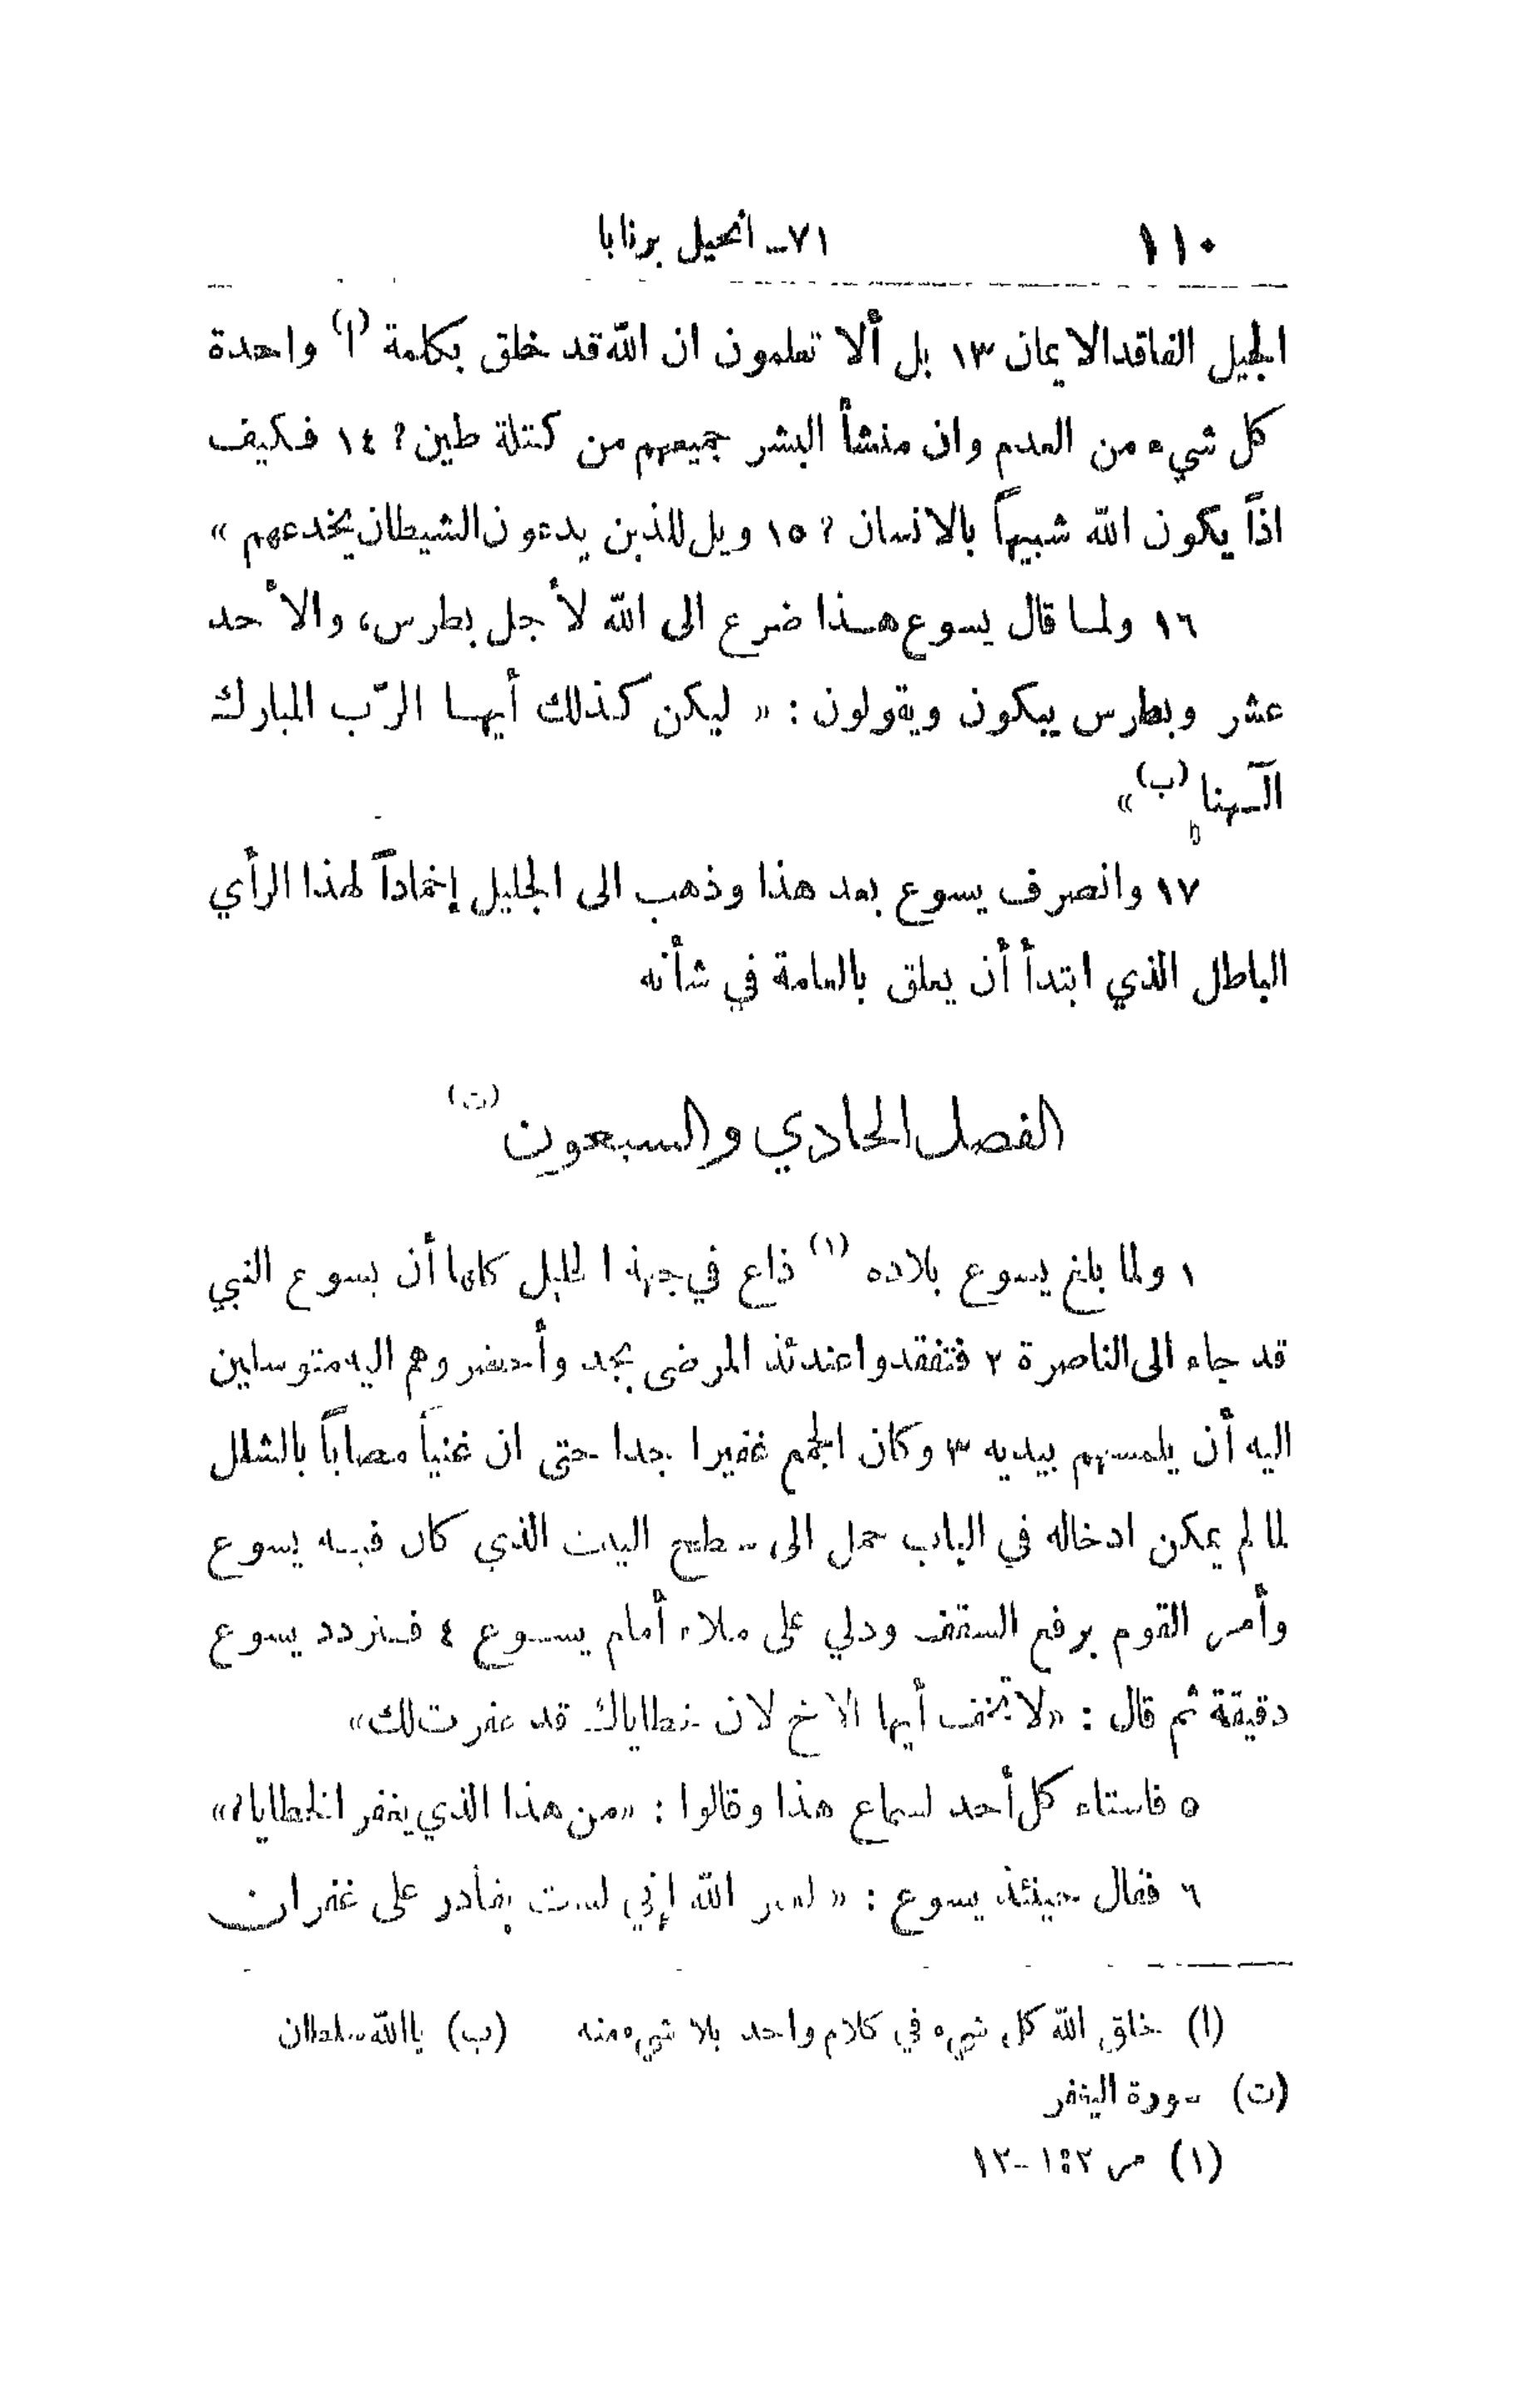 ١١٠ ٧١- انجيل برنابا
الجيل الفاقد الايمان ١٣ بل ألا تعلمون ان الله قد خلق بكلمة (ا) واحدة
كل شيء من العدم وان منشأ البشر جميعهم من كتلة طين ? ١٤ فكيف
اذاً يكون الله شبيهاً بالانسان ? ١٥ ويل للذين يدعون الشيطان يخدعهم »
١٦ ولما قال يسوع هذا ضرع الى الله لأجل بطرس، والأحد
عشر وبطرس يبكون ويقولون : « ليكن كذلك أيها الرّب المبارك
آلهنا (ب) »
١٧ وانصرف يسوع بعد هذا وذهب الى الجليل إخماداً لهذا الرأي
الباطل الذي ابتدأ أن يعلق بالعامة في شأنه
الفصل الحادي والسبعون (ت)
١ ولما بلغ يسوع بلاده (١) ذاع في جهة الجليل كلها أن يسوع النبي
قد جاء الى الناصرة ٢ فتفقدوا عندئذ المرضى بجد وأحضروهم اليه متوسلين
اليه أن يلمسهم بيديه ٣ وكان الجمع غفيرا جدا حتى ان غنياً مصاباً بالشلل
لما لم يمكن ادخاله في الباب حمل الى سطح البيت الذي كان فيه يسوع
وأمر القوم برفع السقف ودلي على ملاء أمام يسوع ٤ فتردد يسوع
دقيقة ثم قال : « لا تخف أيها الاخ لان خطاياك قد غفرت لك »
٥ فاستاء كل أحد لسماع هذا وقالوا : « من هذا الذي يغفر الخطايا ? »
٦ فقال حينئذ يسوع : « لعمر الله إني لست بقادر على غفران
(ا) خلق الله كل شيء في كلام واحد بلا شيء منه (ب) يا الله سلطان
(ت) سورة اليغفر
(١) مر ٢ : ١-١٢